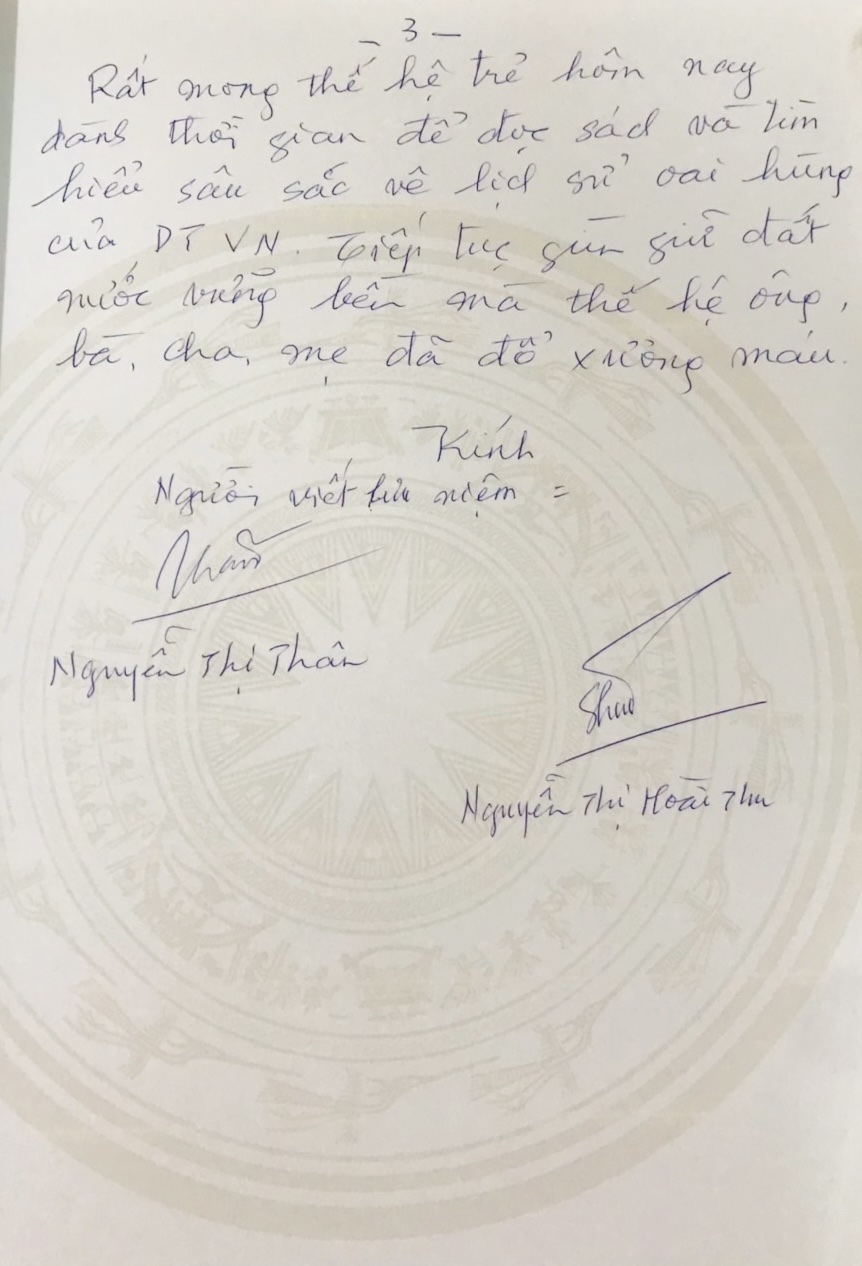 - 3 -
Rất mong thế hệ trẻ hôm nay
dành thời gian để đọc sách và tìm
hiểu sâu sắc về lịch sử oai hùng
của DT VN. Tiếp tục gìn giữ đất
nước vững bền mà thế hệ ông,
bà, cha, mẹ đã đổ xương máu.
Kính
Người viết lưu niệm =
Thân
Nguyễn Thị Thân
Thu
Nguyễn Thị Hoài Thu